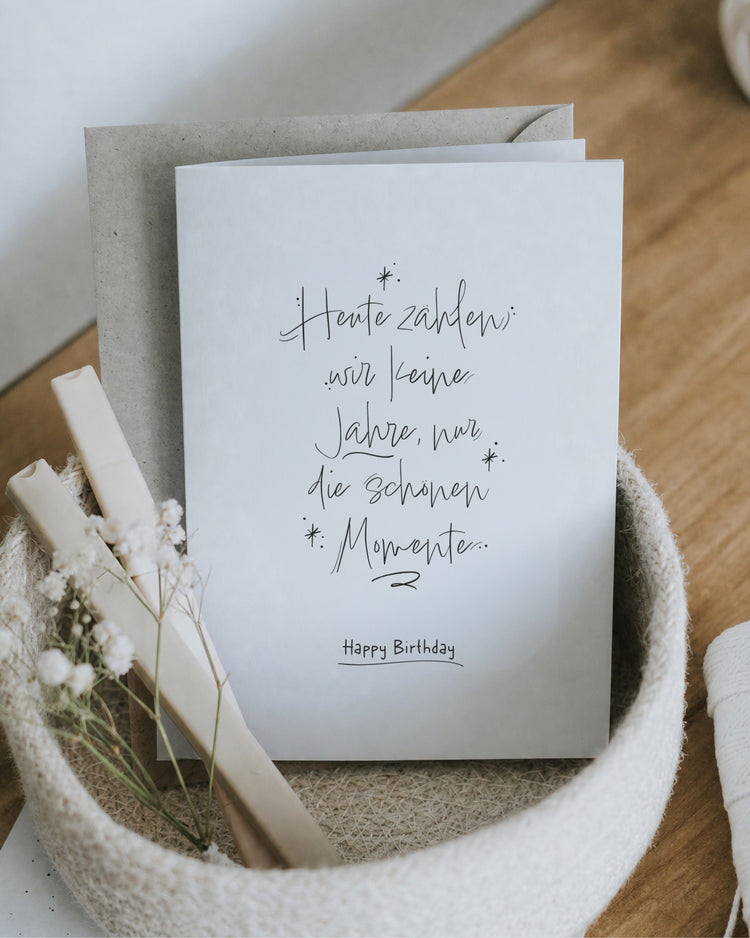 Heute zählen
wir keine
Jahre, nur
die schönen
Momente.
Happy Birthday